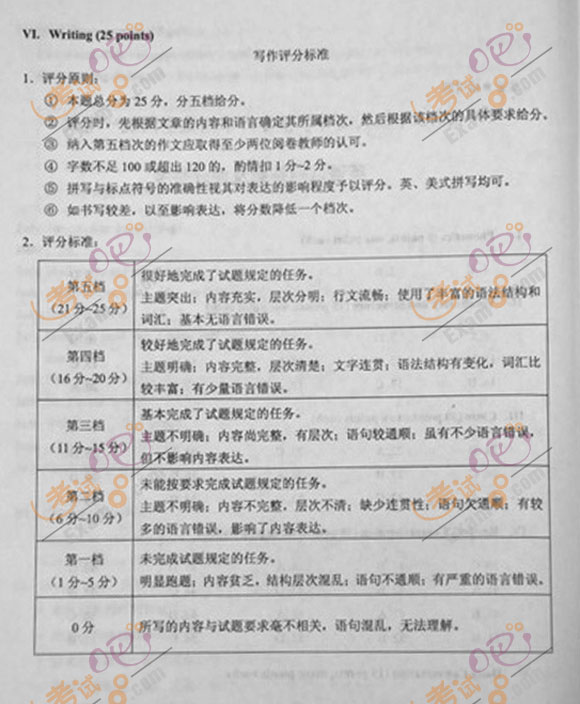 VI. Writing (25 points)
写作评分标准
1. 评分原则:
① 本题总分为 25 分,分五档给分。
② 评分时,先根据文章的内容和语言确定其所属档次,然后根据该档次的具体要求给分。
③ 纳入第五档次的作文应取得至少两位阅卷教师的认可。
④ 字数不足 100 或超出 120 的,酌情扣 1 分~2 分。
⑤ 拼写与标点符号的准确性视其对表达的影响程度予以评分。英、美式拼写均可。
⑥ 如书写较差,以至影响表达,将分数降低一个档次。
2. 评分标准:
第五档
(21 分~25 分)
很好地完成了试题规定的任务。
主题突出;内容充实,层次分明;行文流畅;使用了丰富的语法结构和
词汇;基本无语言错误。
第四档
(16 分~20 分)
较好地完成了试题规定的任务。
主题明确;内容完整,层次清楚;文字连贯;语法结构有变化,词汇比
较丰富;有少量语言错误。
第三档
(11 分~15 分)
基本完成了试题规定的任务。
主题不明确;内容尚完整,有层次;语句较通顺;虽有不少语言错误,
但不影响内容表达。
第二档
(6 分~10 分)
未能按要求完成试题规定的任务。
主题不明确;内容不完整,层次不清;缺少连贯性;语句欠通顺;有较
多的语言错误,影响了内容表达。
第一档
(1 分~5 分)
未完成试题规定的任务。
明显跑题;内容贫乏,结构层次混乱;语句不通顺;有严重的语言错误。
0 分
所写的内容与试题要求毫不相关,语句混乱,无法理解。
考试吧
Exam8.com